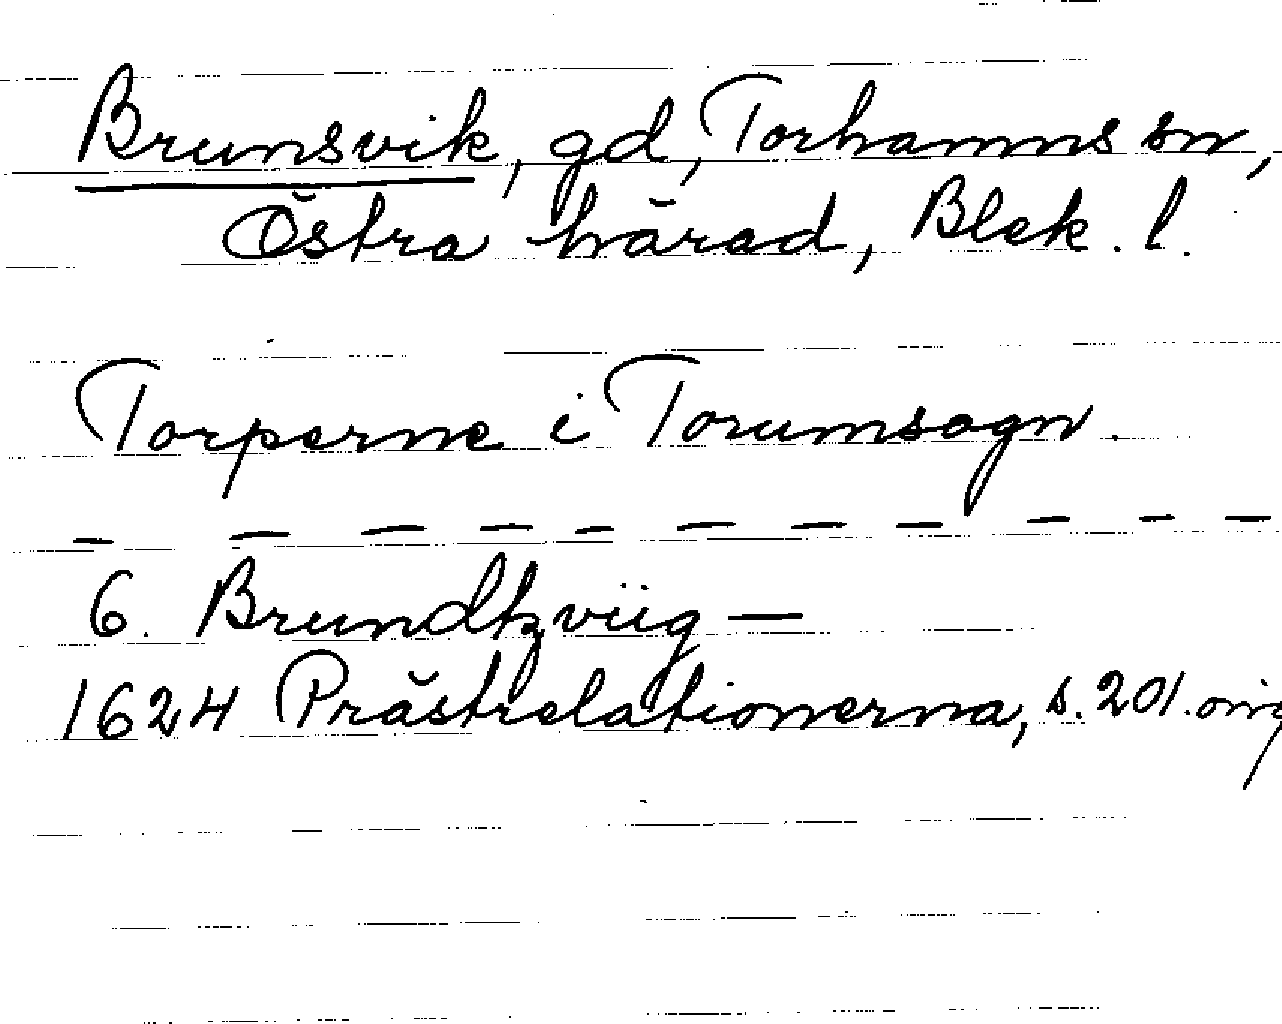 Brunsvik, gd, Torhamns sn,
Östra härad, Blek. l.
Torperne i Torumsogn.
— — — — — — — — — — —
6. Brundtzviig —
1624 Prästrelationerna, s. 201. orig